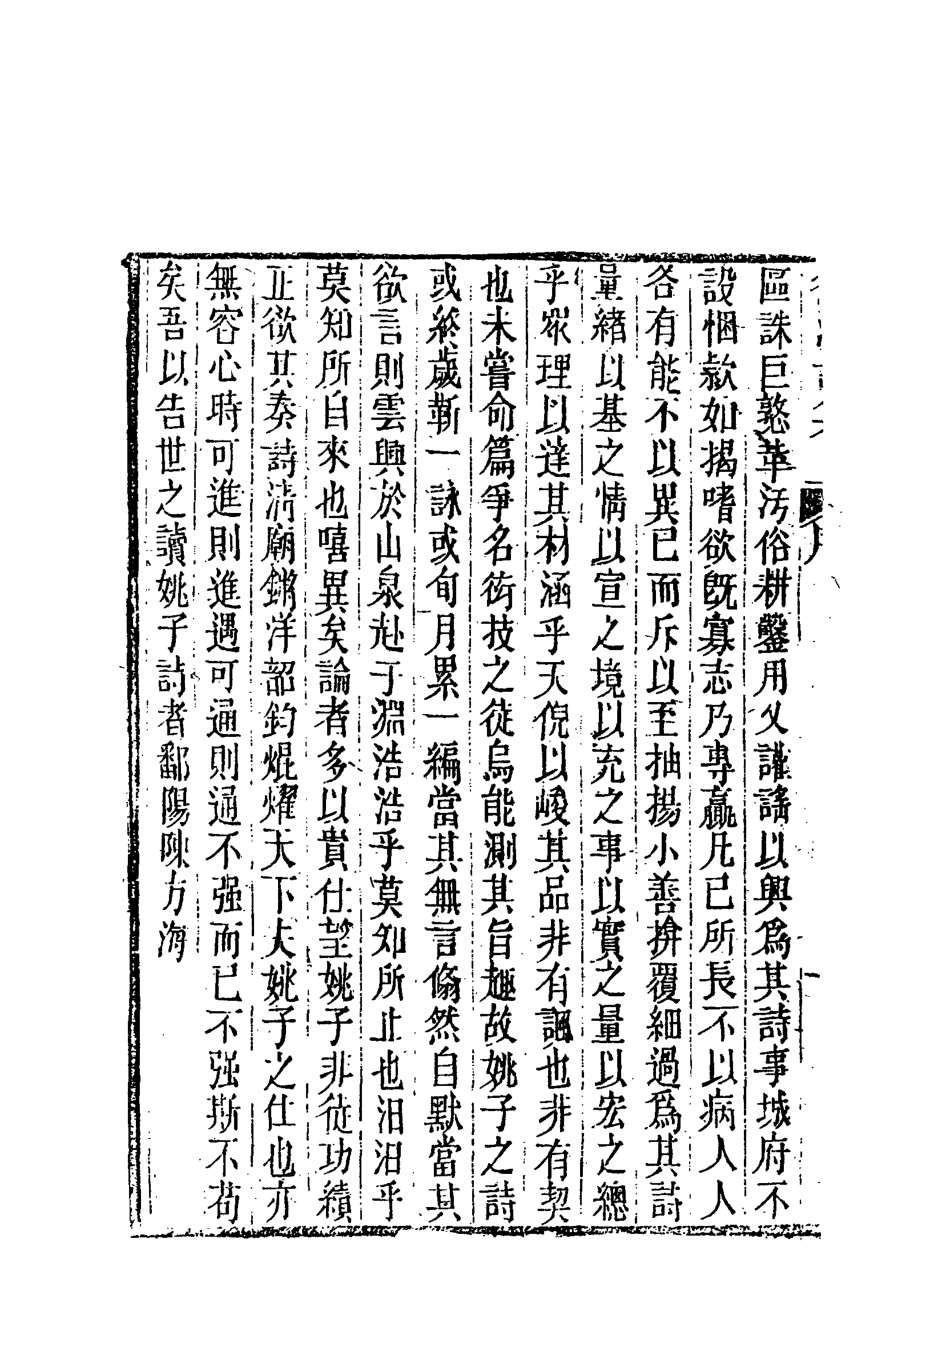 區誅巨憝革汚俗耕鑿用乂謹謠以興爲其詩事城府不
設悃款如揭嗜欲旣寡志乃專贏凡已所長不以病人人
各有能不以異已而斥以至抽揚小善揜覆細過爲其詩
量緒以基之情以宣之境以充之事以實之量以宏之總
乎衆理以達其材涵乎天倪以峻其品非有諷也非有契
也未嘗命篇爭名衒技之徒烏能測其旨趣故姚子之詩
或終歲靳一詠或旬月累一編當其無言翛然自默當其
欲言則雲興於山泉赴于淵浩浩乎莫知所止也汨汨乎
莫知所自來也嘻異矣論者多以貴仕望姚子非徒功績
正欲其奏詩淸廟鏘洋韶鈞焜燿天下夫姚子之仕也亦
無容心時可進則進遇可通則通不强而已不强斯不苟
矣吾以告世之讀姚子詩者鄱陽陳方海